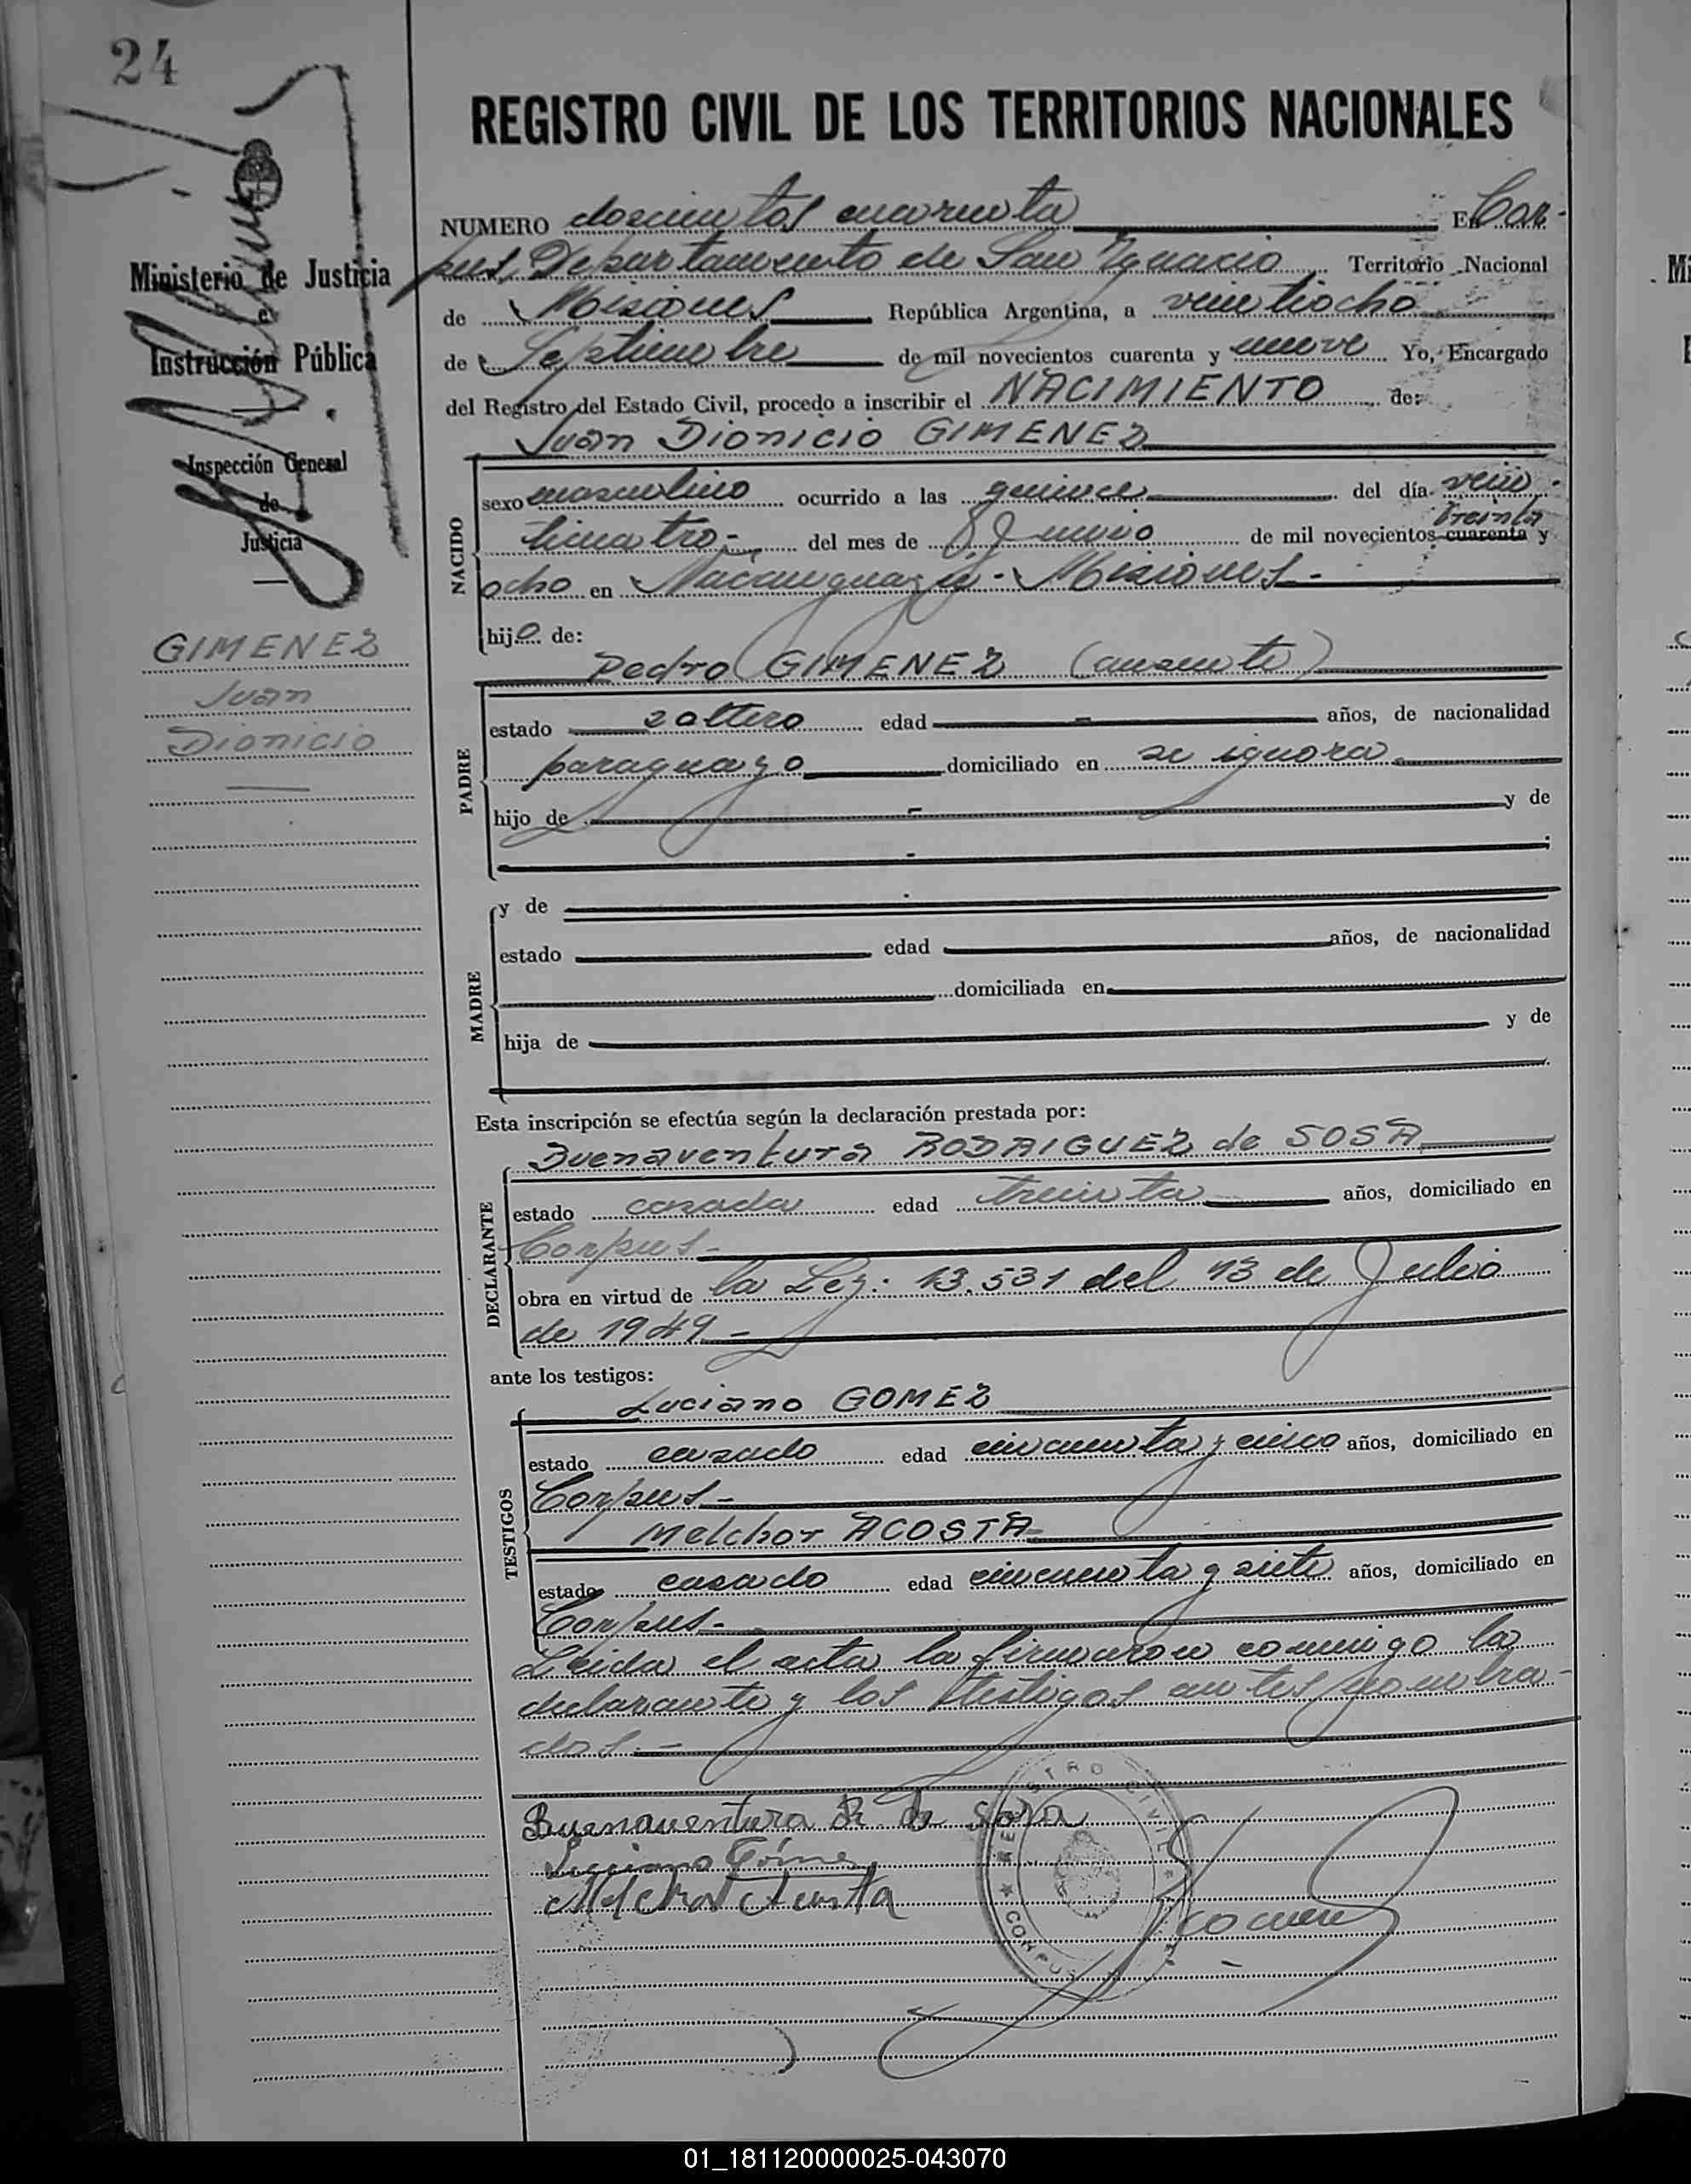 24
REGISTRO CIVIL DE LOS TERRITORIOS NACIONALES
Ministerio de Justicia
Instrucción Pública
Inspección General
de
Justicia
GIMENEZ
Juan
Dionicio
NUMERO doscientos cuarenta En Cor-
pus, Departamento de San Ygnacio Territorio Nacional
de Misiones República Argentina, a veintiocho
de Septiembre de mil novecientos cuarenta y nueve Yo, Encargado
del Registro del Estado Civil, procedo a inscribir el NACIMIENTO de:
Juan Dionicio GIMENEZ
NACIDO
sexo masculino ocurrido a las quince del día vein-
treinta
ticuatro- del mes de Junio de mil novecientos cuarenta y
ocho en Ñacanguazú - Misiones -
hijo de:
Pedro GIMENEZ (ausente)
PADRE
estado soltero edad - años, de nacionalidad
paraguayo domiciliado en se ignora
hijo de - y de
MADRE
y de
estado edad años, de nacionalidad
domiciliada en
hija de y de
Esta inscripción se efectúa según la declaración prestada por:
Buenaventura RODRIGUEZ de SOSA
DECLARANTE
estado casada edad treinta años, domiciliado en
Corpus -
obra en virtud de la Ley: 13.531 del 13 de Julio
de 1949 -
ante los testigos:
Luciano GOMEZ
TESTIGOS
estado casado edad cincuenta y cinco años, domiciliado en
Corpus -
Melchor ACOSTA
estado casado edad cincuenta y siete años, domiciliado en
Corpus -
Leida el acta la firmaron conmigo la
declarante y los testigos antes nombra-
dos. -
Buenaventura R. de Sosa
Luciano Gómez
Melchor Acosta
REGISTRO CIVIL
CORPUS
01_181120000025-043070